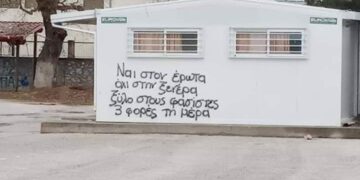 Ναι στον έρωτα
όχι στην ξενέρα
ξύλο στους φασίστες
3 φορές τη μέρα